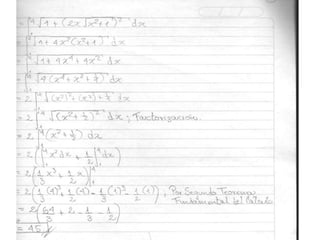 = ∫₁⁴ √1 + (2x√x²+1)² dx
= ∫₁⁴ √1 + 4x²(x²+1) dx
= ∫₁⁴ √1 + 4x⁴ + 4x² dx
= ∫₁⁴ √4(x⁴ + x² + ¼) dx
= 2 ∫₁⁴ √(x²)² + (x²) + ¼ dx
= 2 ∫₁⁴ √(x² + ½)² dx ; Factorización.
= 2 ∫₁⁴ (x² + ½) dx
= 2 (∫₁⁴ x² dx + ½ ∫₁⁴ dx)
= 2 (⅓ x³ + ½ x) |₁⁴
= 2 (⅓ (4)³ + ½ (4) - ⅓ (1)³ - ½ (1)) ; Por Segundo Teorema Fundamental del Cálculo
= 2 (64/3 + 2 - ⅓ - ½)
= 45